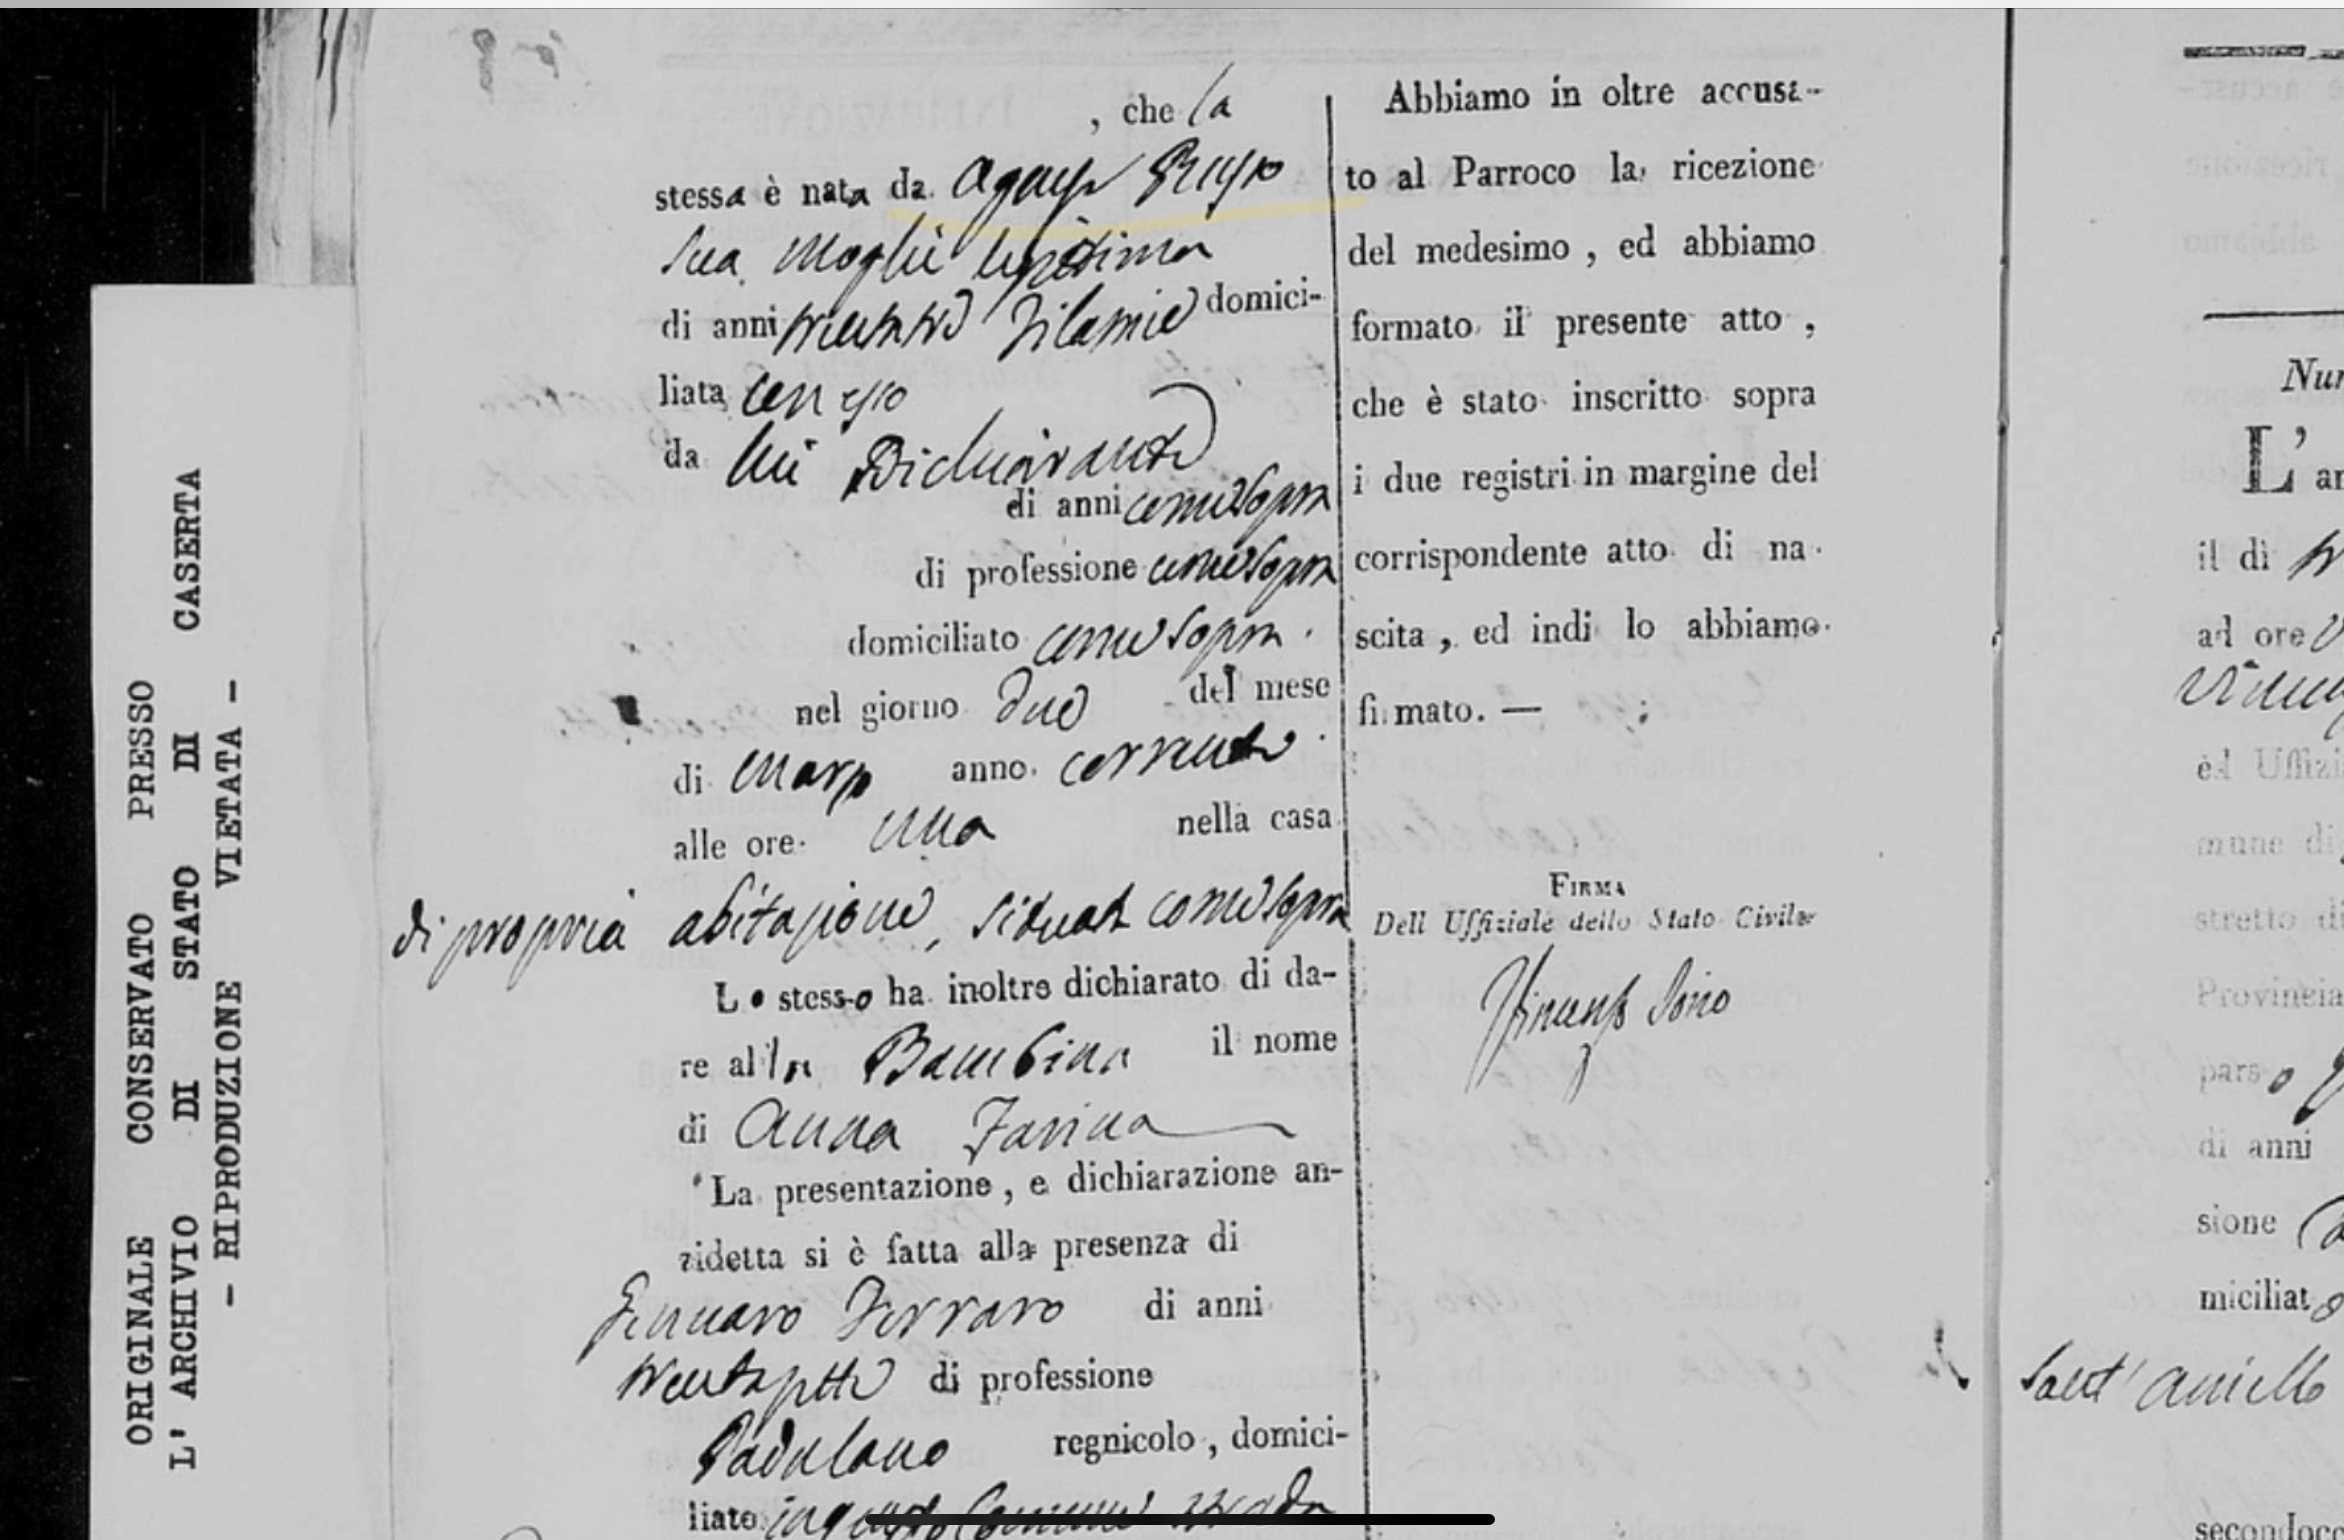 ORIGINALE CONSERVATO PRESSO
L' ARCHIVIO DI STATO DI CASERTA
- RIPRODUZIONE VIETATA -
, che la
stessa è nata da
Sua Moglie legittima
di anni trentatre Filatrice domici-
liata con esso
da lui Dichiarante
di anni come Sopra
di professione come Sopra
domiciliato come Sopra.
nel giorno due del mese
di Marzo anno corrente.
alle ore una nella casa
di propria abitazione, situata come Sopra
Lo stesso ha inoltre dichiarato di da-
re alla Bambina il nome
di Anna Farina
La presentazione, e dichiarazione an-
zidetta si è fatta alla presenza di
Gennaro Ferraro di anni
trentasette di professione
Padulano regnicolo, domici-
liato in questo Comune strada
Abbiamo in oltre accusa-
to al Parroco la ricezione
del medesimo, ed abbiamo
formato il presente atto,
che è stato inscritto sopra
i due registri in margine del
corrispondente atto di na-
scita, ed indi lo abbiamo
firmato. —
FIRMA
Dell Uffiziale dello Stato Civile
Vincenzo
Nu
L' an
il dì
ad ore
ed Uffizi
mune di
stretto di
Provincia
parso
di anni
sione
miciliato
Sant' Aniello